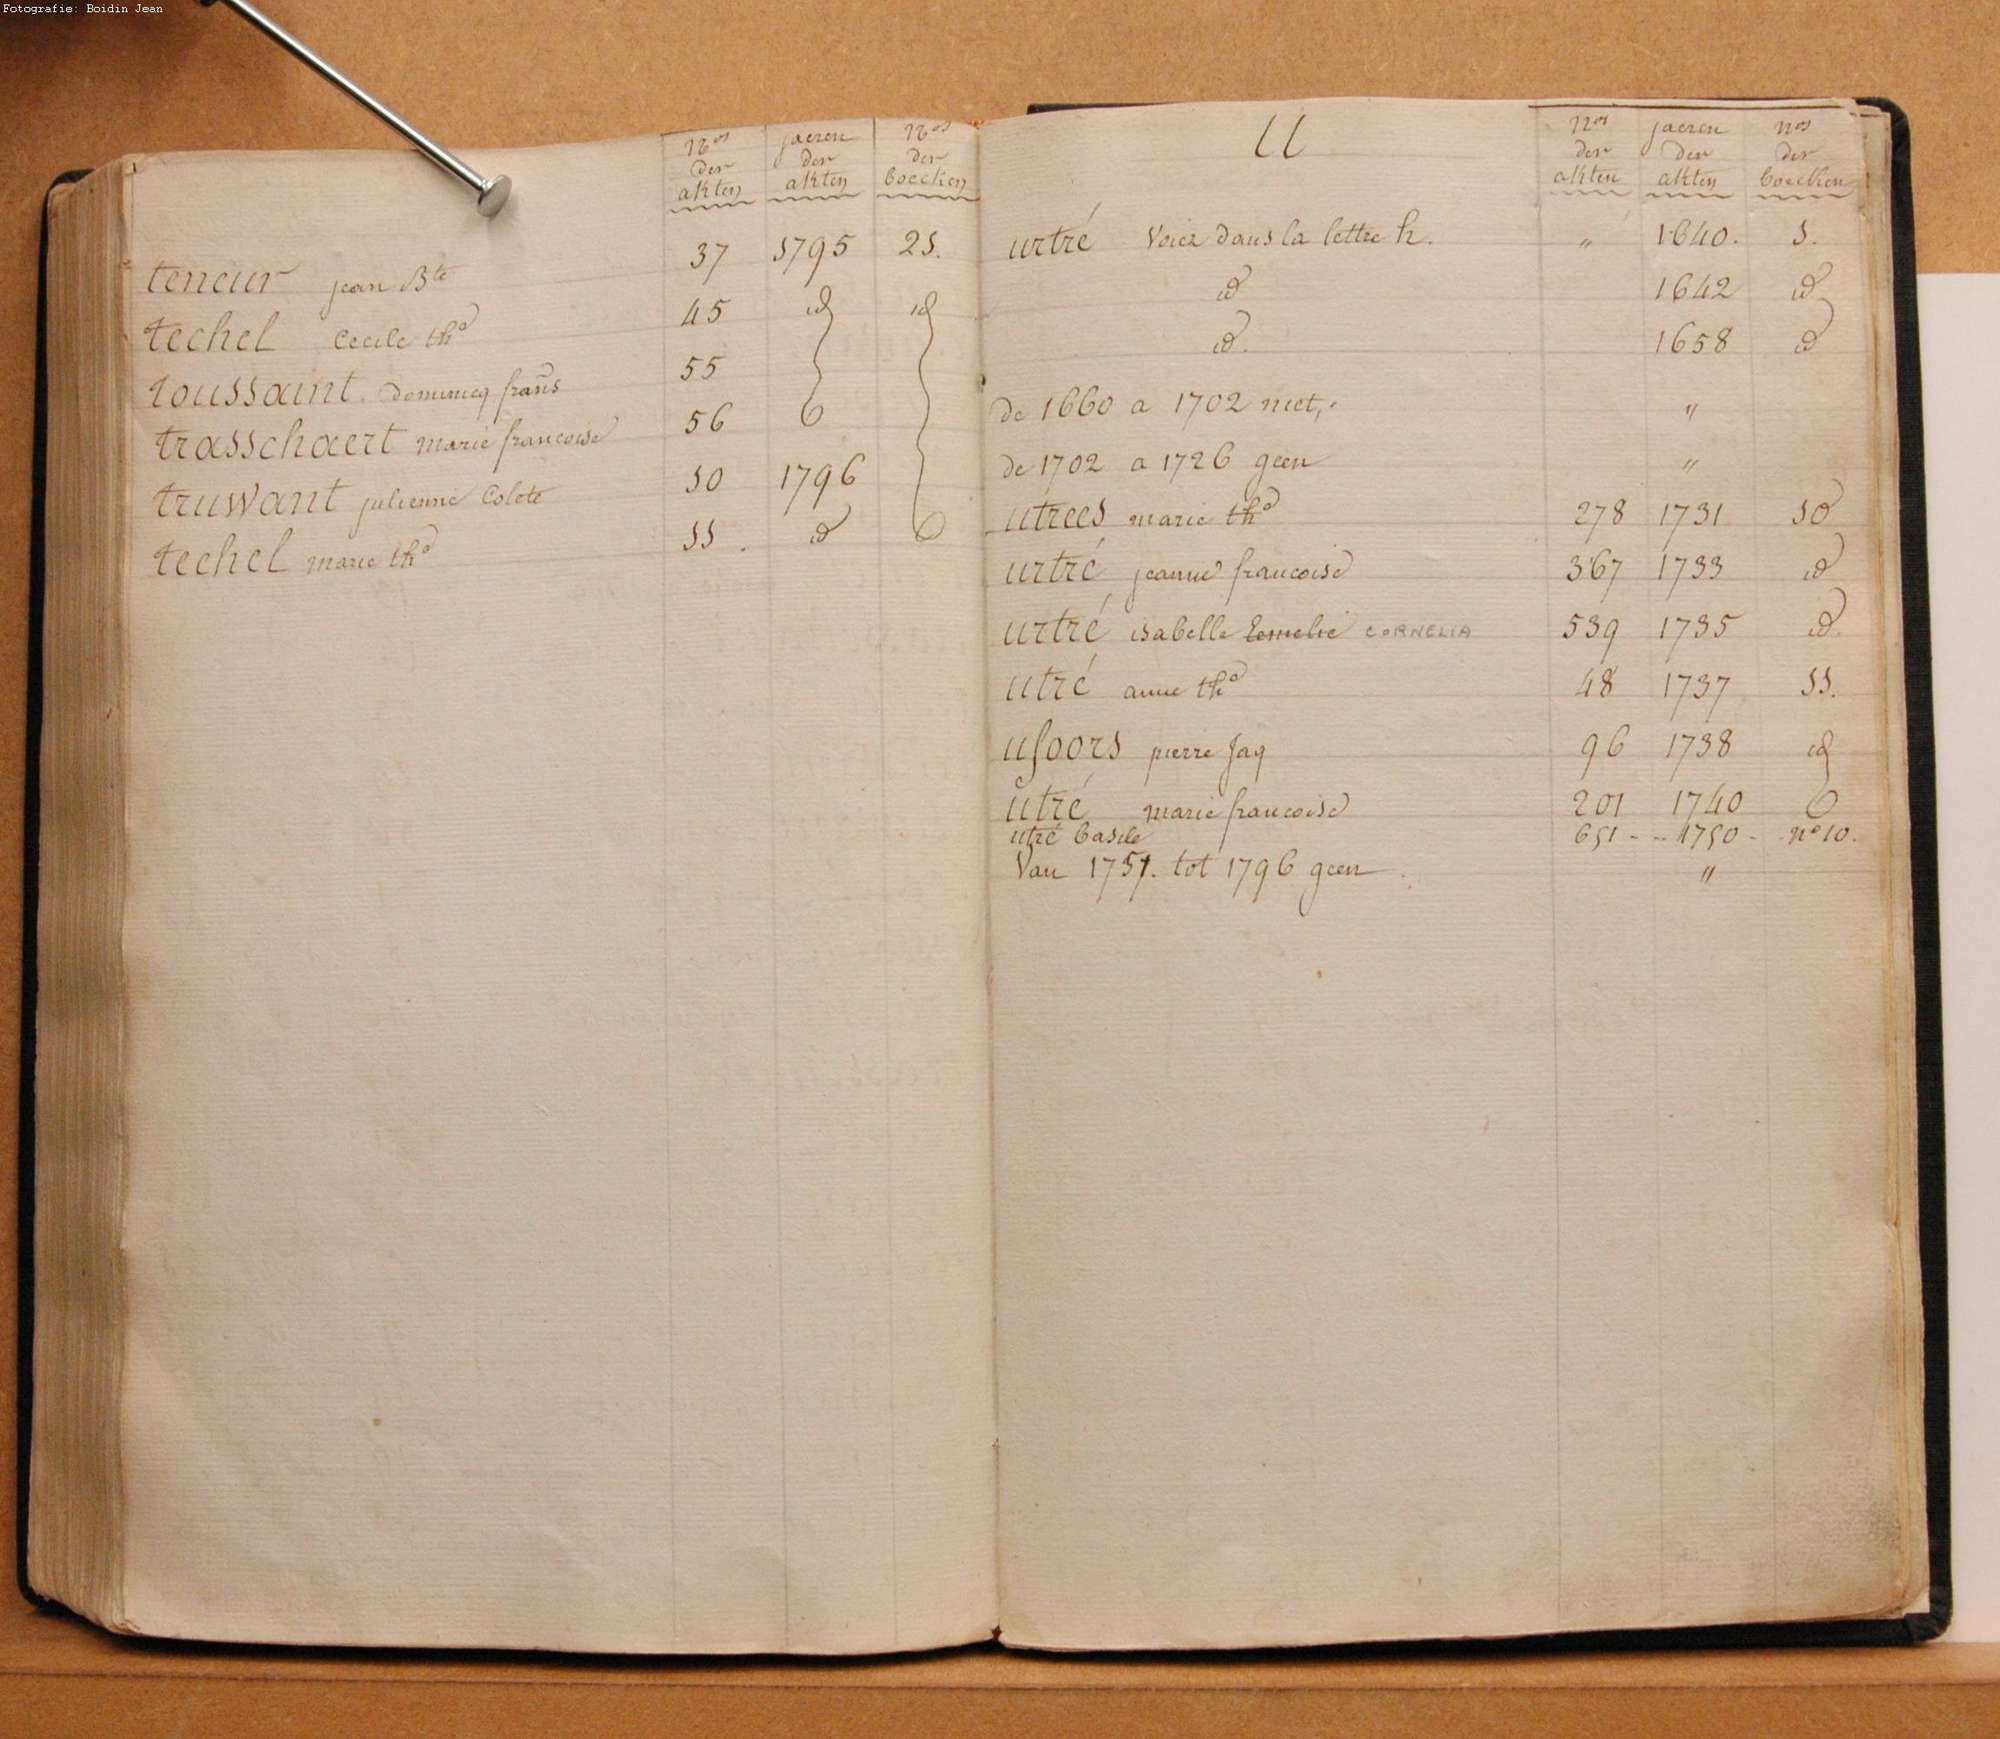 Fotografie: Boidin Jean
Nos der akten jaeren der akten Nos der boecken
teneur jean Bte 37 1795 21.
techel Cecile the 45 id id
toussaint. Dominicq frans 55
trasschaert marie francoise 56
truwant julienne Colete 10 1796
techel marie the 11. id
U
nos der akten jaeren der akten nos der boecken
urtré Voiez dans la lettre h. " 1640. 1.
id 1642 id
id. 1658 id
de 1660 a 1702 niet,.  "
de 1702 a 1726 geen "
utrees marie the 278 1731 10
urtré jeanne francoise 367 1733 id
urtré isabelle Cornelia 539 1735 id.
utré anne the 48 1737 11.
usoors pierre Jaq 96 1738 id
utré marie francoise 201 1740
utré basile 651 - - 1750 - - no 10.
Van 1751. tot 1796 geen "